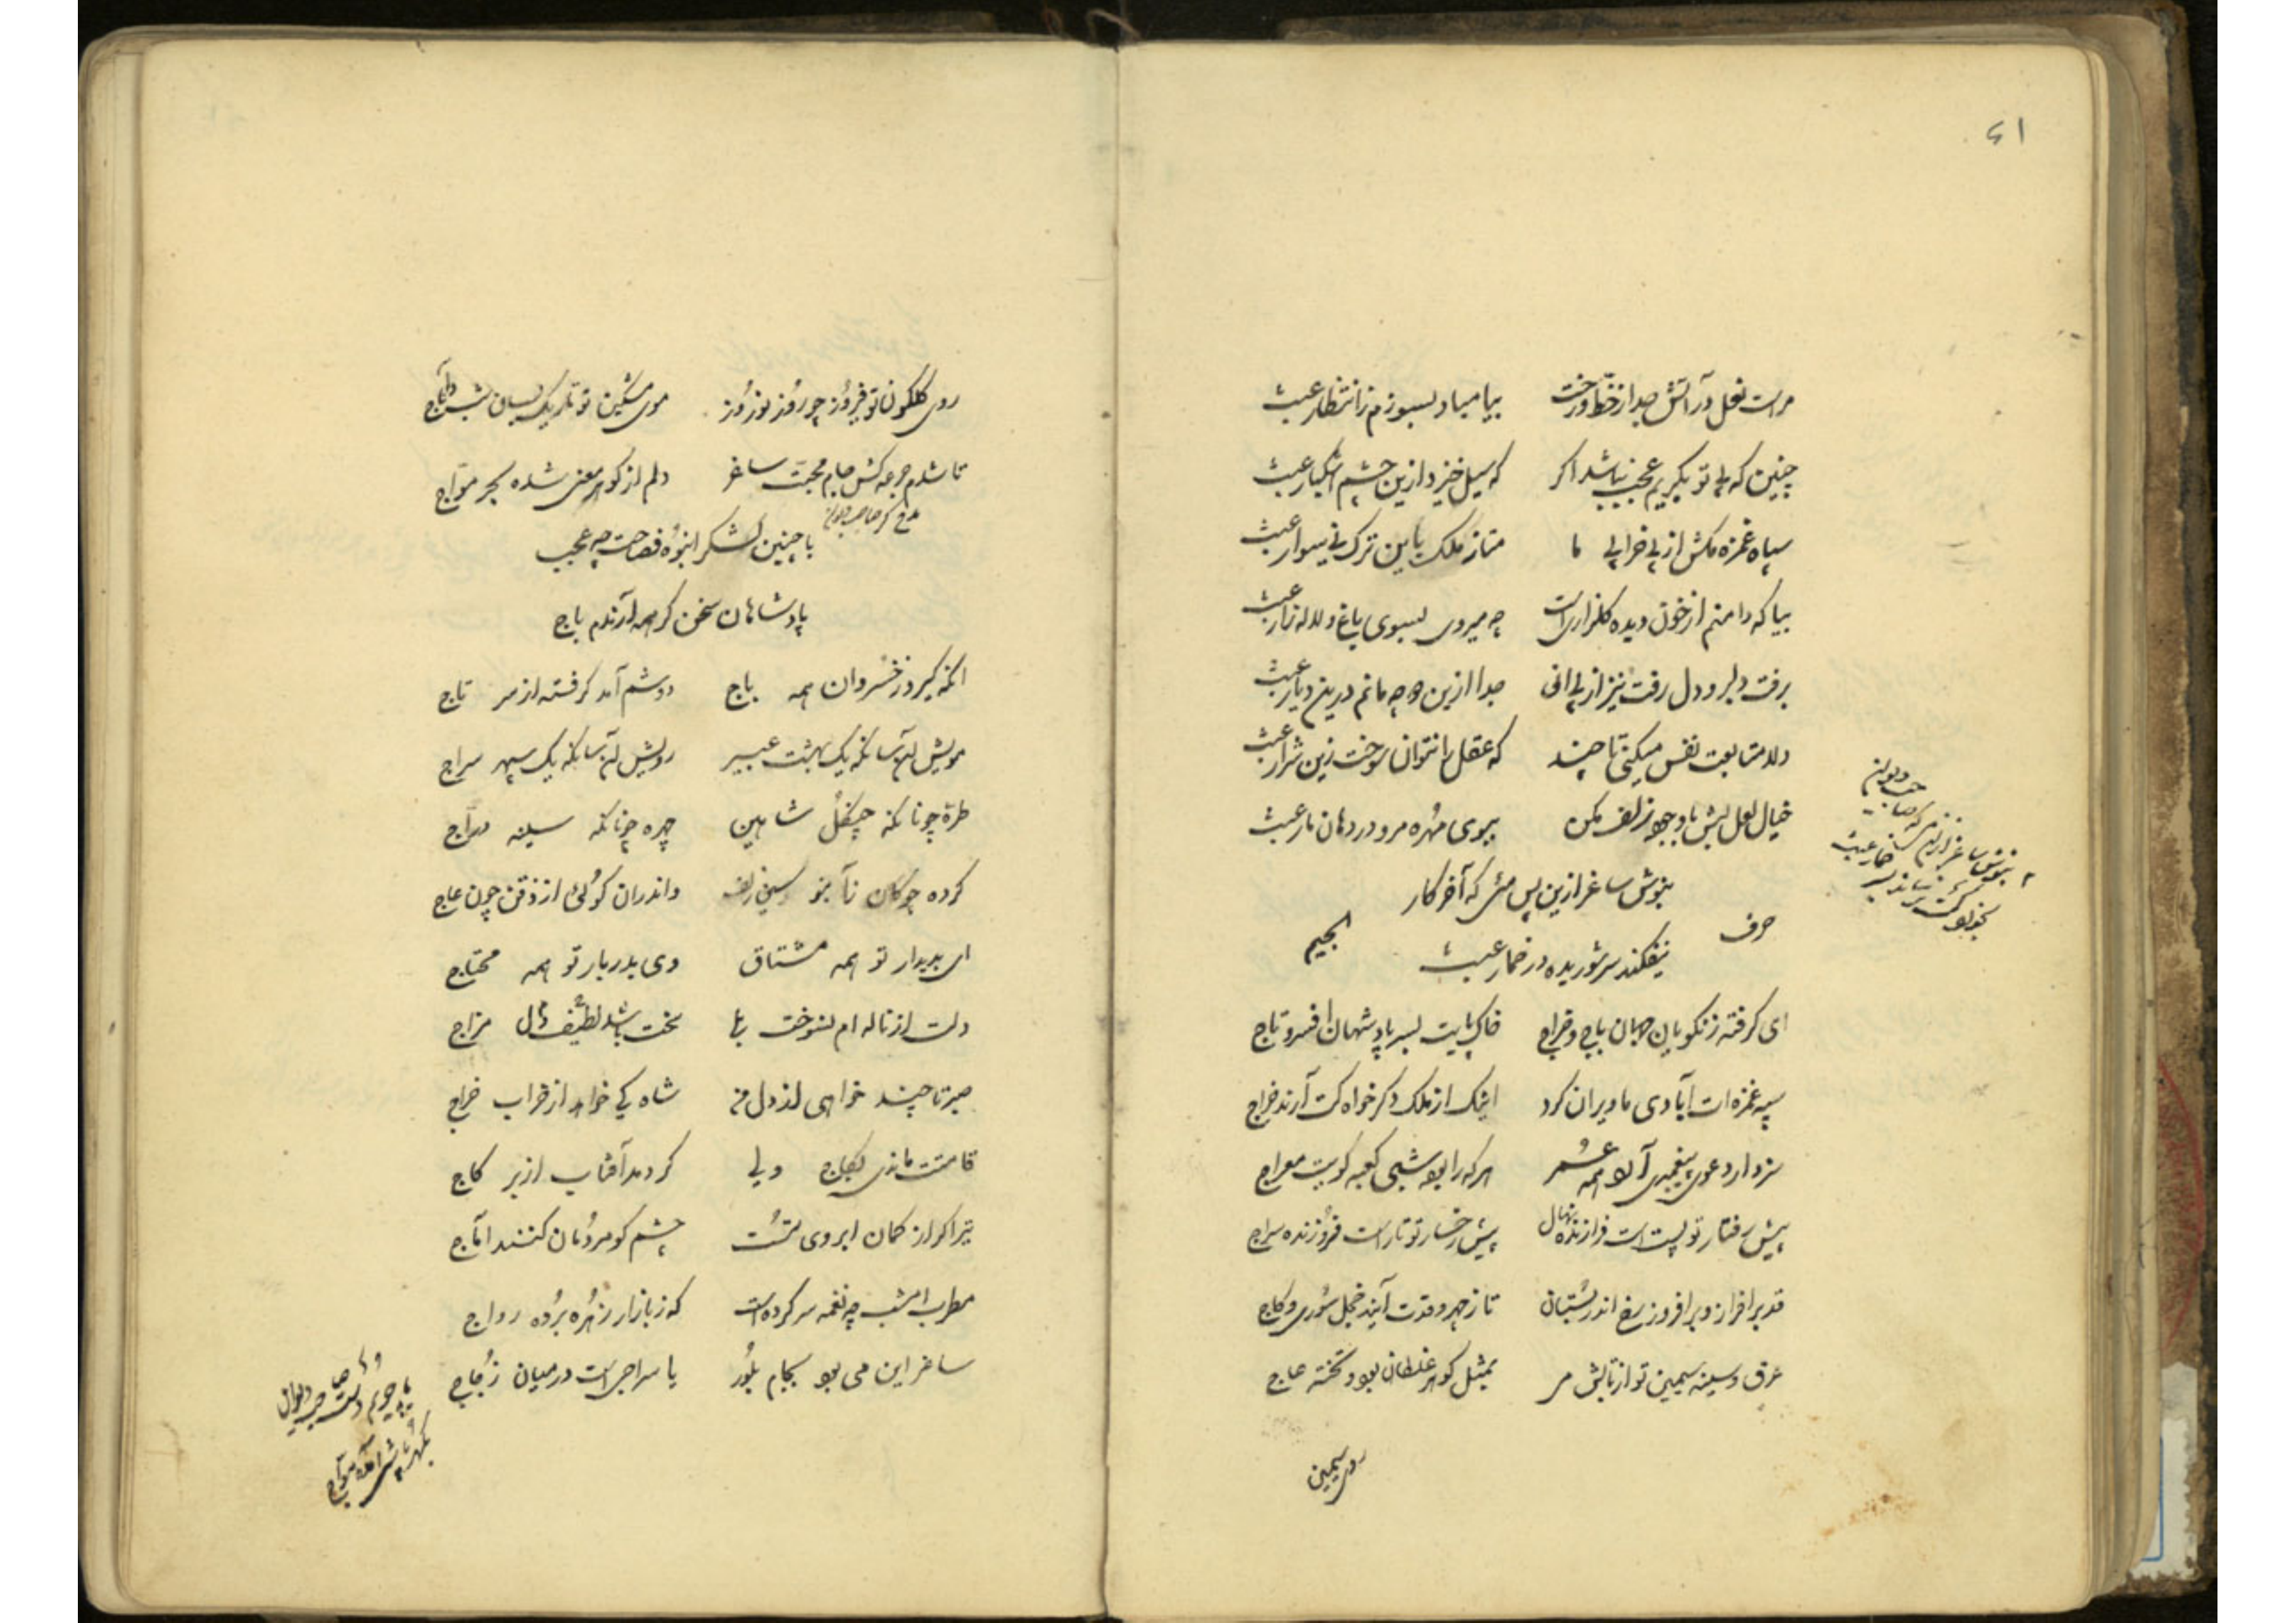 ۶۱
مراست نعل در آتش جدا از خط و رخت بیا مباد بسوزم ز انتظار عبث
چنین که بی تو بگریم عجب نباشد اگر که سیل خیزد ازین چشم اشکبار عبث
سپاه غمزه مکش از پی خرابی ما متاز ملک باین ترک نی سوار عبث
بیا که دامنم از خون دیده گلزار است چه میروی بسوی باغ و لاله زار عبث
برفت دلبر و دل رفت نیز از پی اش جدا ازین و چه مانم درین دیار عبث
دلا متابعت نفس میکنی تا چند که عقل را نتوان سوخت زین شرار عبث
خیال لعل لبش با وجود زلف مکن ببوی مهره مرو در دهان مار عبث
بنوش ساغر ازین پس مئی که آخر کار
نیفکند سر شوریده در خمار عبث
حرف الجیم
ای گرفته ز نکویان جهان باج و خراج خاک پایت بسر پادشهان افسر و تاج
سپه غمزه ات آبادی ما ویران کرد اینک از ملک دگر خواه کت آرند خراج
سزد ار دعوی پیغمبری آرد همه عمر هر که را بود شبی کعبه کویت معراج
پیش رفتار تو پست است فرازنده نهال پیش رخسار تو تار است فروزنده سراج
قد برافراز و برافروز رخ اندر بستان تا ز چهر و قدت آیند خجل سوری و کاج
عرق و سینه سیمین تو از تابش می بمثل گوهر غلطان بود و تخته عاج
روی سیمین
بنوش ساغر ازین می که صاحب دیوان
روی گلگون تو فیروز چو روز نوروز موی مشکین تو تاریک بسان شب داج
تا شدم جرعه کش جام محبت ساغر دلم از گوهر معنی شده بحر مواج
با چنین لشکر انبوه فصاحت چه عجب
پادشاهان سخن گر همه آرندم باج
آنکه گیرد ز خسروان همه باج دوشم آمد گرفته از سر تاج
مویش آنسانکه یک بهشت عبیر رویش آنسانکه یک سپهر سراج
طره چونانکه چنگل شاهین چهره چونانکه سینه دراج
کرده چوگان ز سیمین زلف واندران گوئی از ذقن چون عاج
ای بدیدار تو همه مشتاق وی بدربار تو همه محتاج
دلت از ناله ام نسوخت بلی سخت باشد لطیف مزاج
صبر تا چند خواهی از دل من شاه کی خواهد از خراب خراج
قامتت ماندی بکاج ولی کردمد آفتاب از بر کاج
تیر اگر از کمان ابروی تست چشم گو مردمان کنند آماج
مطرب امشب چه نغمه سر کرده است که ز بازار زهره برده رواج
ساغر این می بود بجام بلور یا سراجی است در میان زجاج